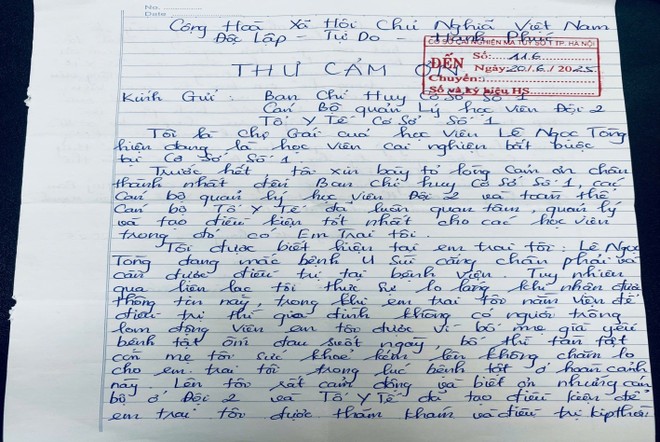 No.
Date
Cộng Hoà Xã Hội Chủ Nghĩa Việt Nam
Độc Lập - Tự Do - Hạnh Phúc
CƠ SỞ CAI NGHIỆN MA TÚY SỐ 1 TP. HÀ NỘI
ĐẾN
Số: 116
Ngày 20/6/2025
Chuyển:
Số và ký hiệu HS
THƯ CẢM ƠN
Kính Gửi: Ban Chỉ Huy Cơ Sở Số 1
Cán Bộ quản Lý học Viên Đội 2
Tổ Y Tế Cơ Sở Số 1
Tôi là Chị Gái của học Viên Lê Ngọc Tòng
hiện đang là học viên cai nghiện bắt buộc
tại Cơ Sở Số 1
Trước hết, tôi xin bày tỏ lòng Cảm ơn chân
thành nhất đến Ban chỉ huy Cơ Sở Số 1, các
Cán bộ quản lý học viên Đội 2 và toàn thể
Cán bộ Tổ Y Tế đã luôn quan tâm, quản lý
và tạo điều kiện tốt nhất cho các học viên
trong đó có Em Trai tôi.
Tôi được biết hiện tại em trai tôi: Lê Ngọc
Tòng đang mắc bệnh U Sùi cẳng chân phải và
cần được điều trị tại bệnh viện. Tuy nhiên
qua liên lạc tôi thực sự lo lắng khi nhận được
thông tin này, trong khi em trai tôi nằm viện để
điều trị thì gia đình không có người trông
lom động viên em tôi được vì bố mẹ già yếu
bệnh tật ốm đau suốt ngày, bố thì tàn tật
còn mẹ tôi sức khoẻ kém lên không chăm lo
cho em trai tôi trong lúc bệnh tật ở hoàn cảnh
này. Lên tôi rất cảm động và biết ơn những cán
bộ ở Đội 2 và Tổ Y Tế đã tạo điều kiện để
em trai tôi được thăm khám và điều trị kịp thời.